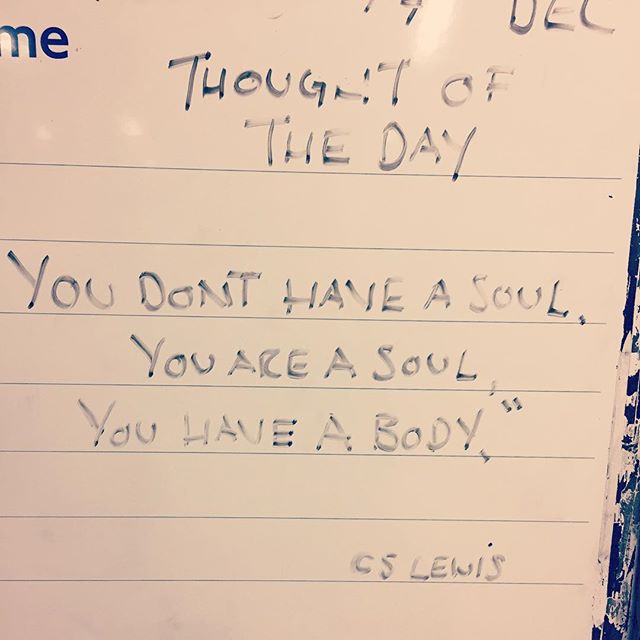 me
DEC
THOUGHT OF
THE DAY
YOU DONT HAVE A SOUL.
YOU ARE A SOUL,
YOU HAVE A BODY."
CS LEWIS